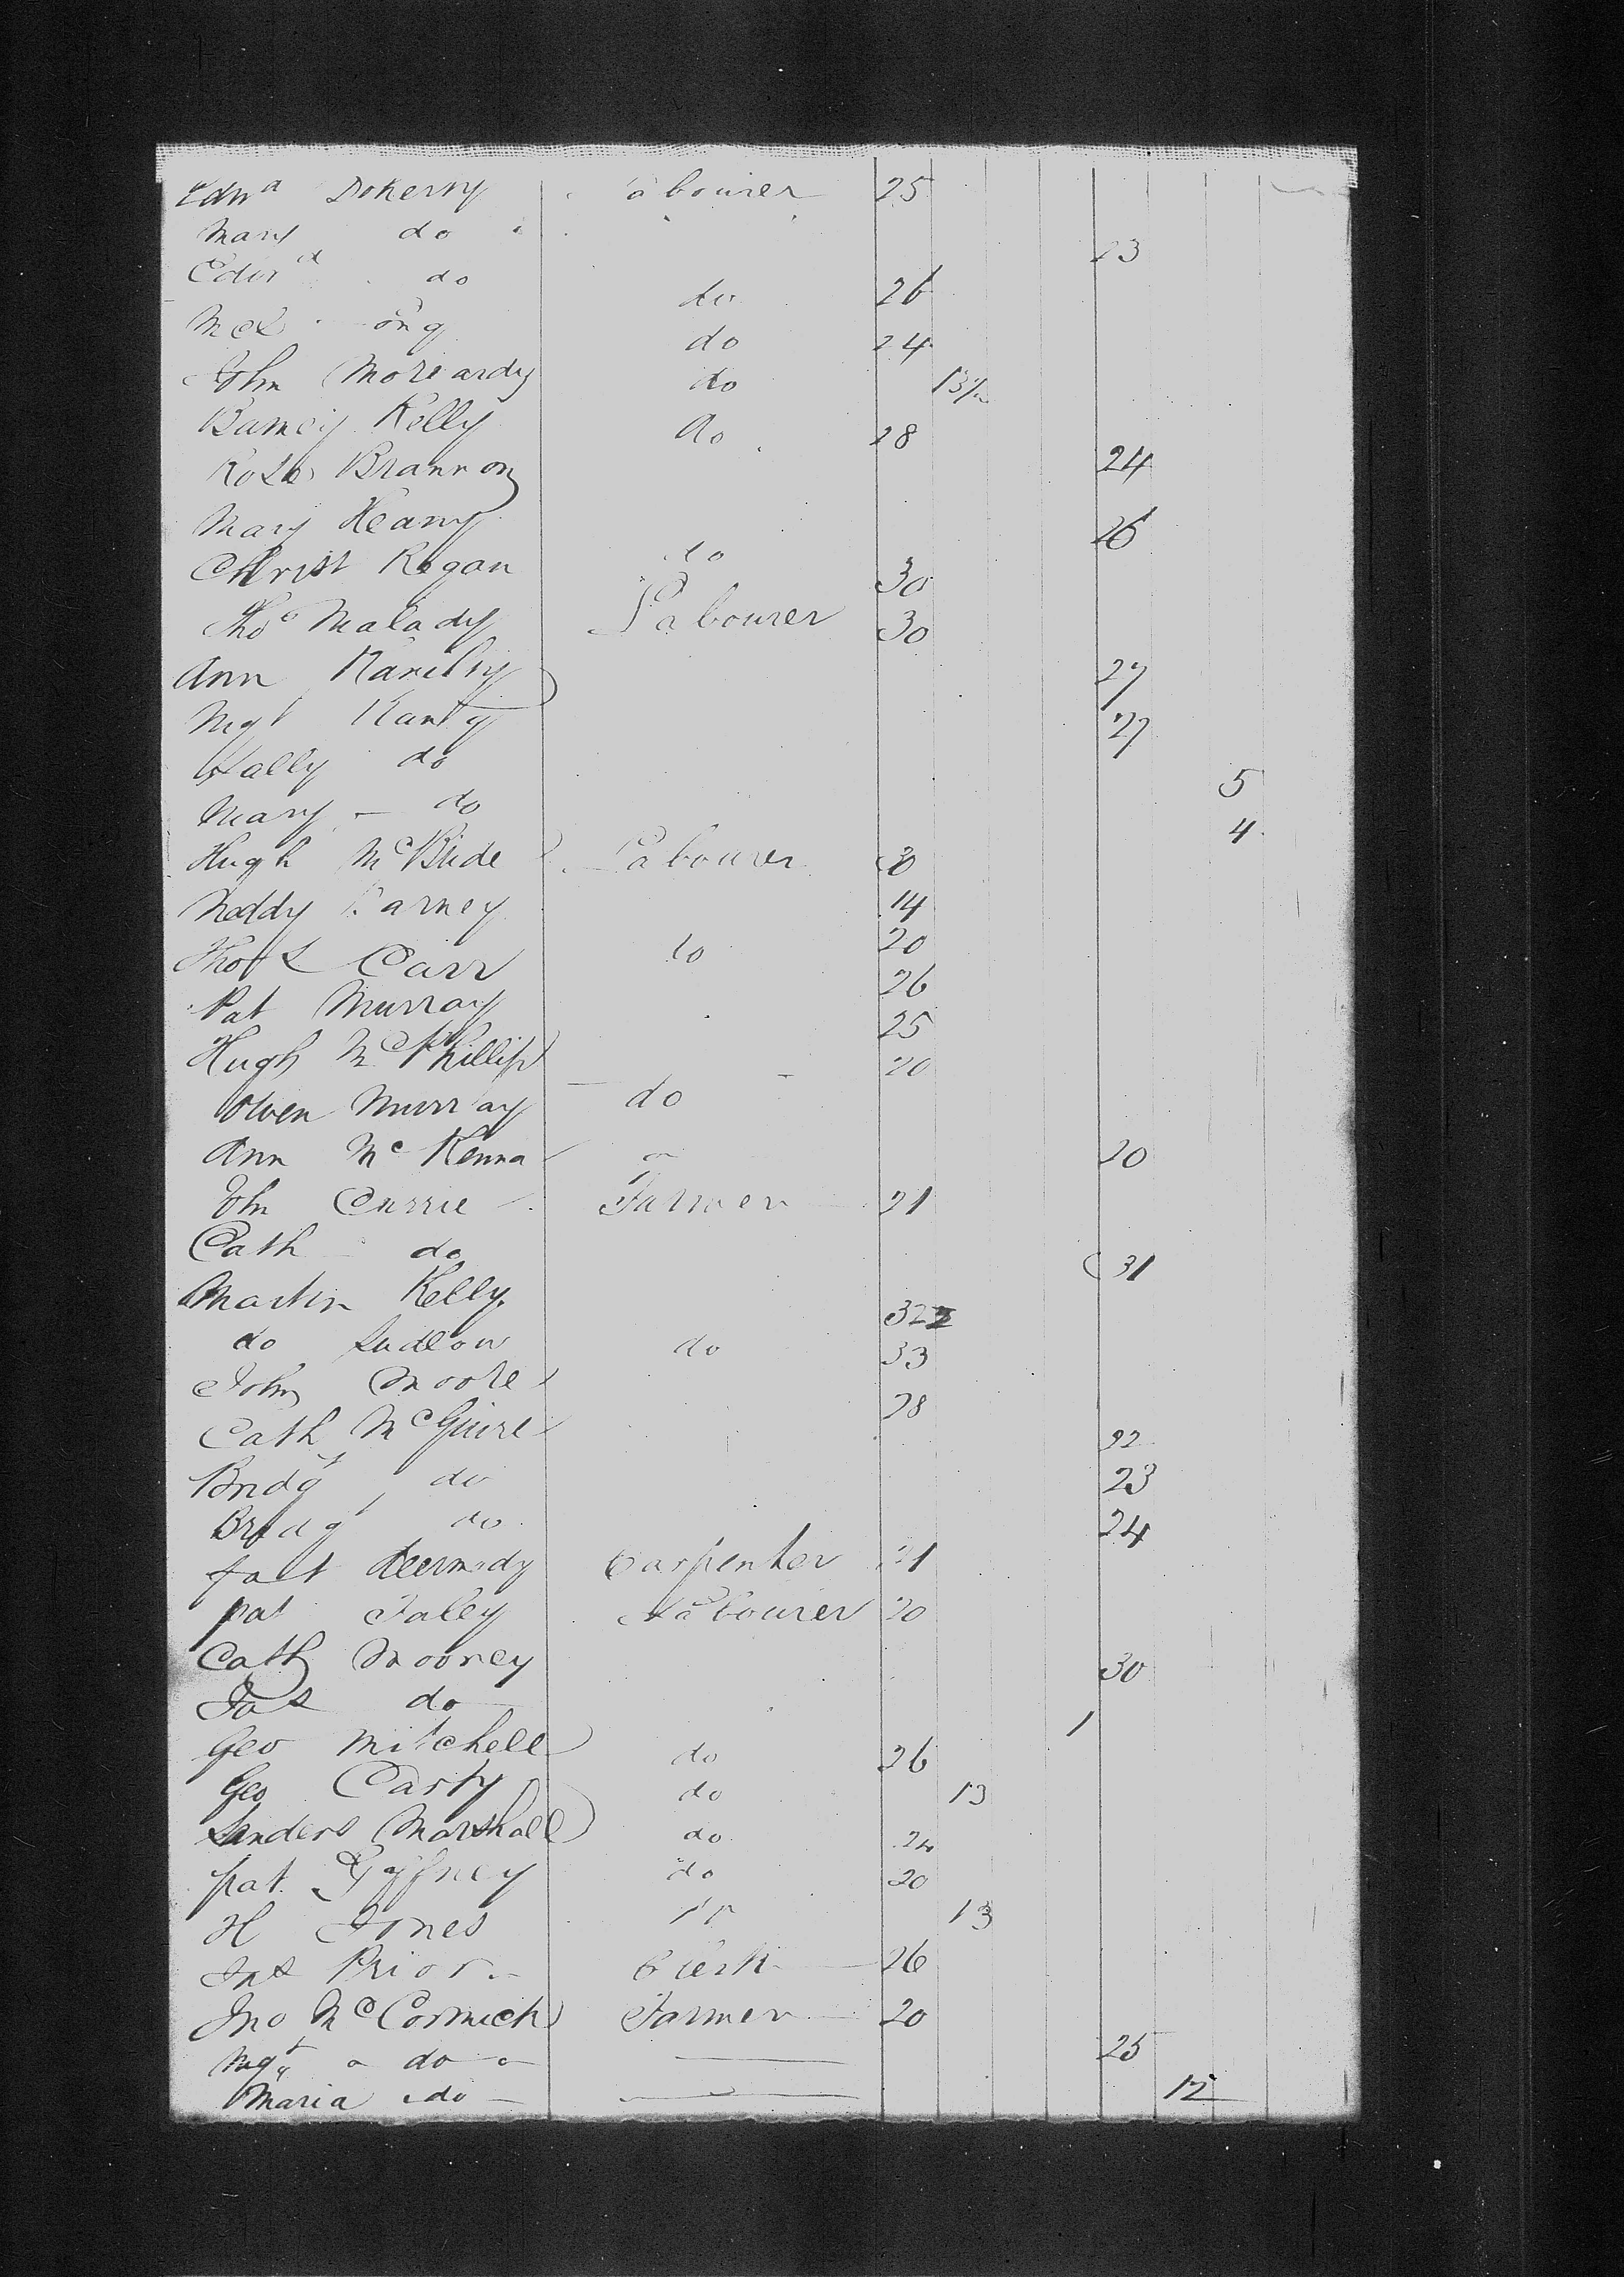 Edwd Doherty Labourer 25
Mary do 23
Edwd do do 26
do 24
John do 13½
Barney Kelly do 28
Rose Brannon 24
Mary Heany 26
Christ Regan do 30
Thos Malady Labourer 30
Ann 27
Mgt 27
Sally do 5
Mary - do 4
Hugh McBride Labourer 30
Neddy Karney 14
Thos Carr do 20
Pat Murray 26
Hugh McPhillip 25
Owen Murray do 20
Ann McKenna 20
John Currie Farmer 21
Cath do 31
Martin Kelly 32
do Ludlow do 33
John Moore 28
Cath McGuire 22
Bridgt do 23
Bridgt do 24
Pat Kennedy Carpenter 21
Pat Faley Labourer 20
Cath Mooney 30
Jas do 1
Geo Mitchell do 26
Geo Carty do 13
Sanders Marshall do 24
Pat Gaffney do 20
H Jones 13
Jas Prior Clerk 26
Jno McCormick Farmer 20
Mgt do 25
Maria do 12